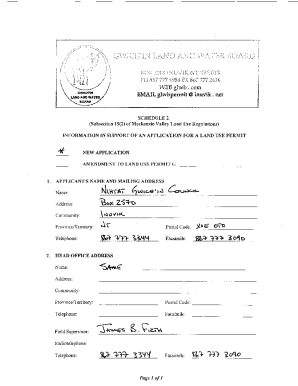 GWICH'IN LAND AND WATER BOARD
WEB glwb . com
EMAIL glwbpermit @ inuvik . net
GWICH'IN
LAND AND WATER
BOARD
SCHEDULE 2
(Subsection 19(2) of Mackenzie Valley Land Use Regulations)
INFORMATION IN SUPPORT OF AN APPLICATION FOR A LAND USE PERMIT
NEW APPLICATION
AMENDMENT TO LAND USE PERMIT #:
1. APPLICANT'S NAME AND MAILING ADDRESS
Name: NIHTAT GWICH'IN COUNCIL
Address: BOX 2570
Community: INUVIK
Province/Territory: NT Postal Code: X0E 0T0
Telephone: 867 777 3344 Facsimile: 867 777 3090
2. HEAD OFFICE ADDRESS
Name: SAME
Address:
Community:
Province/Territory: Postal Code:
Telephone: Facsimile:
Field Supervisor: JAMES B. FIRTH
Radiotelephone:
Telephone: 867 777 3344 Facsimile: 867 777 3090
Page 1 of 1